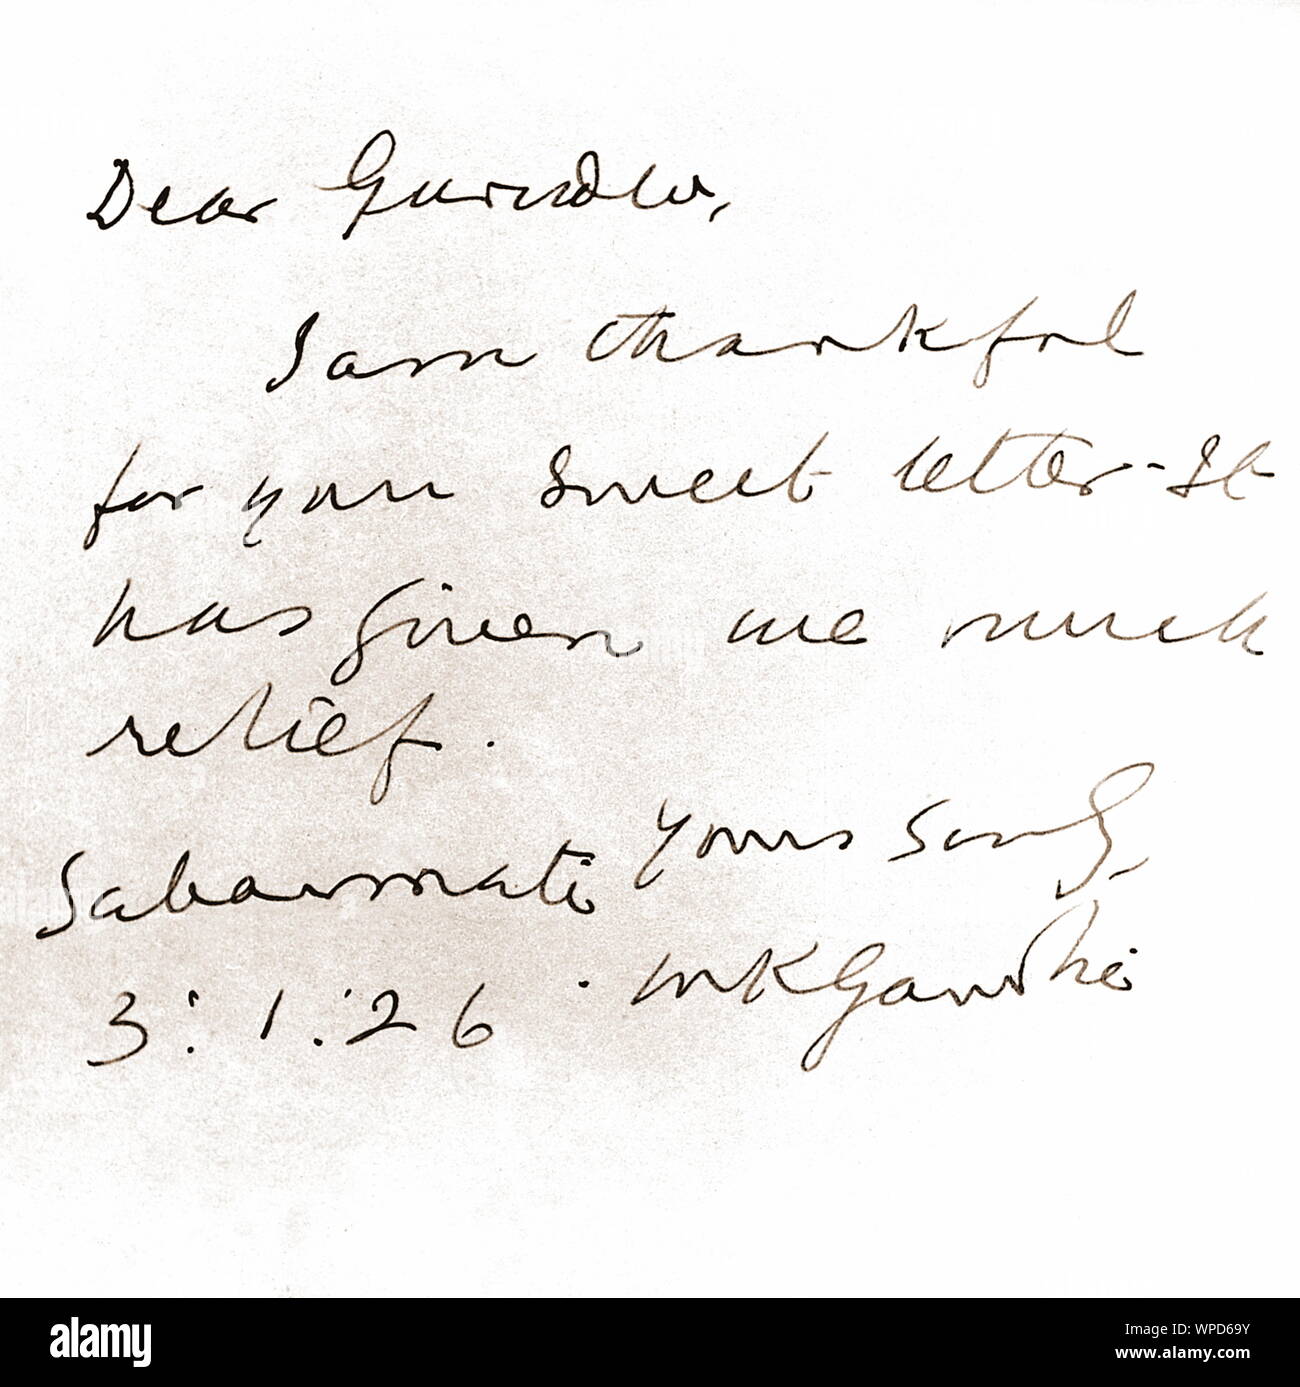 Dear Gurudev,
I am thankful
for your sweet letter. It
has given me much
relief.
Yours sincly
Sabarmati
MKGandhi
3:1:26
alamy
Image ID: WPD69Y
www.alamy.com